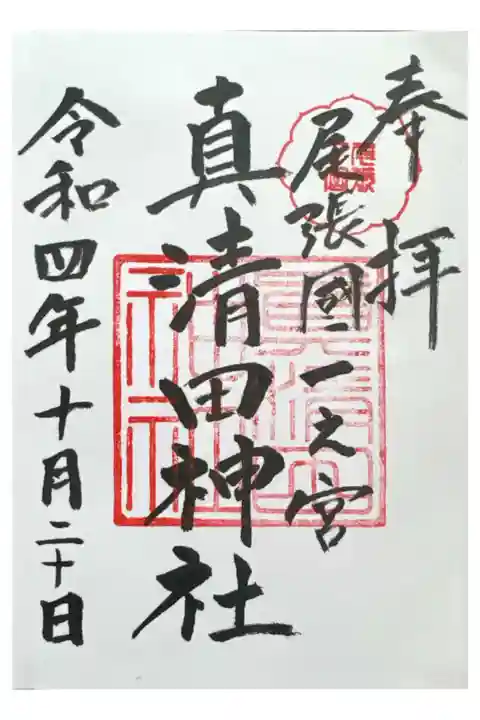 奉拝
尾張國一之宮
真清田神社
令和四年十月二十日